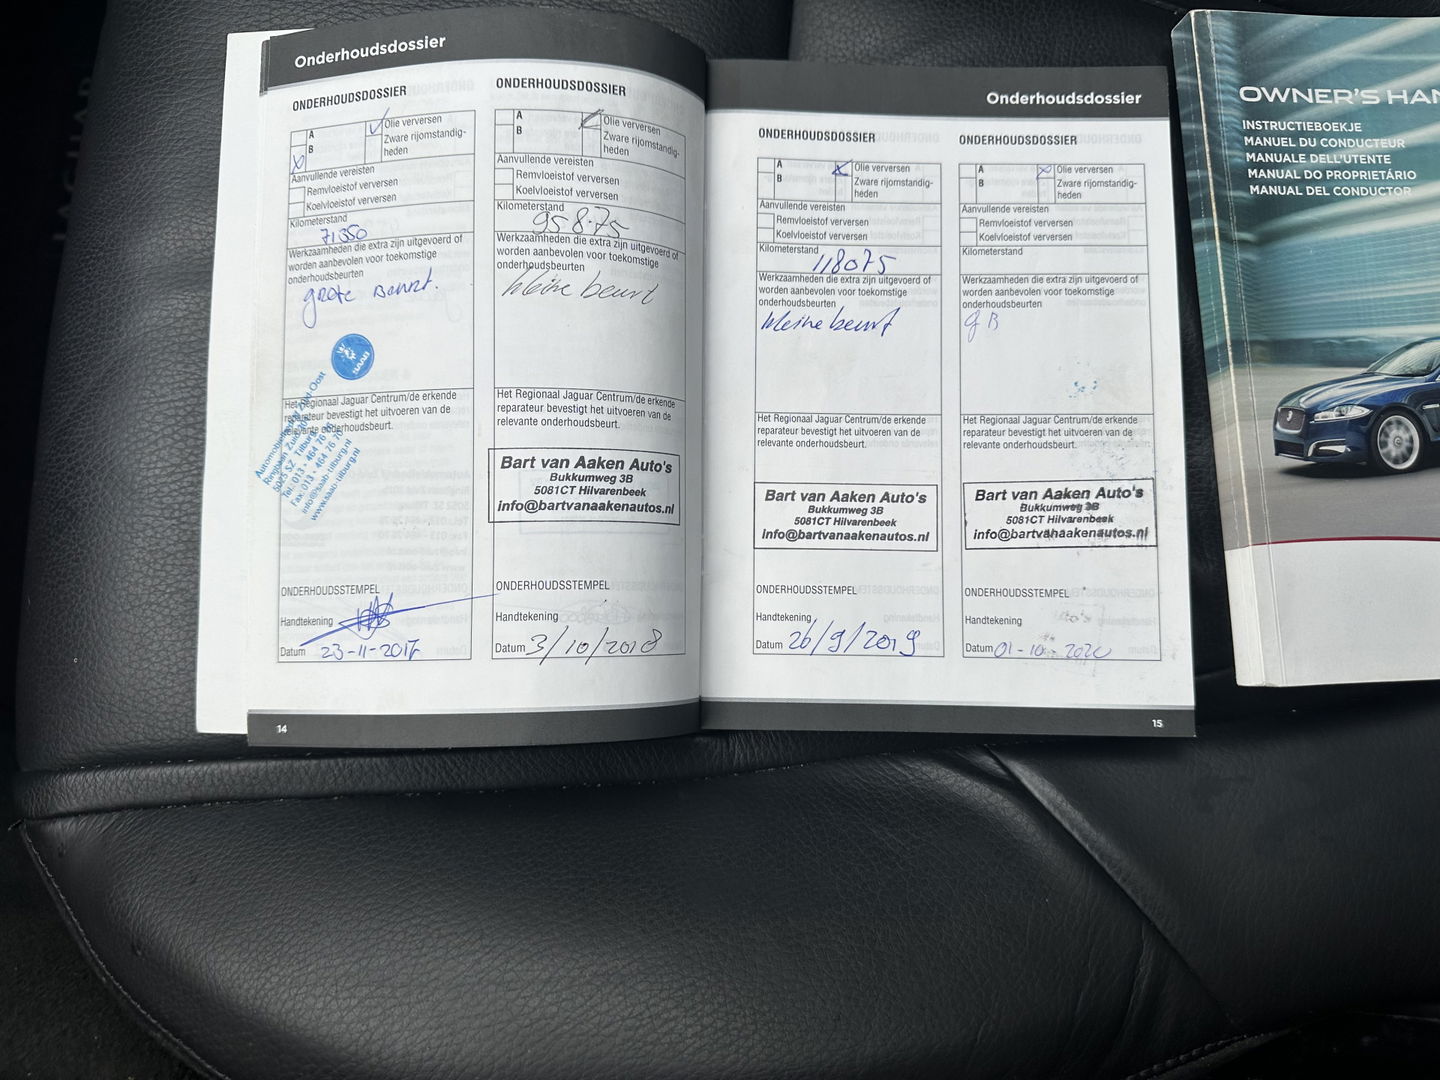 Onderhoudsdossier
ONDERHOUDSDOSSIER
A
B
Olie verversen
Zware rijomstandig-
heden
Aanvullende vereisten
Remvloeistof verversen
Koelvloeistof verversen
Kilometerstand
71350
Werkzaamheden die extra zijn uitgevoerd of
worden aanbevolen voor toekomstige
onderhoudsbeurten
grote Beurt.
SAAB
Het Regionaal Jaguar Centrum/de erkende
reparateur bevestigt het uitvoeren van de
relevante onderhoudsbeurt.
Ringbaan Zuid
5025 SZ Tilburg
Tel: 013 - 464 76
Fax: 013 - 464 76 70
info@saab-tilburg.nl
www.saab-tilburg.nl
ONDERHOUDSSTEMPEL
Handtekening
Datum 23-11-2017
14
ONDERHOUDSDOSSIER
A
B
Olie verversen
Zware rijomstandig-
heden
Aanvullende vereisten
Remvloeistof verversen
Koelvloeistof verversen
Kilometerstand
958.75
Werkzaamheden die extra zijn uitgevoerd of
worden aanbevolen voor toekomstige
onderhoudsbeurten
kleine beurt
Het Regionaal Jaguar Centrum/de erkende
reparateur bevestigt het uitvoeren van de
relevante onderhoudsbeurt.
Bart van Aaken Auto's
Bukkumweg 3B
5081CT Hilvarenbeek
info@bartvanaakenautos.nl
ONDERHOUDSSTEMPEL
Handtekening
Datum 3/10/2018
Onderhoudsdossier
ONDERHOUDSDOSSIER
A
B
Olie verversen
Zware rijomstandig-
heden
Aanvullende vereisten
Remvloeistof verversen
Koelvloeistof verversen
Kilometerstand
118075
Werkzaamheden die extra zijn uitgevoerd of
worden aanbevolen voor toekomstige
onderhoudsbeurten
kleine beurt
Het Regionaal Jaguar Centrum/de erkende
reparateur bevestigt het uitvoeren van de
relevante onderhoudsbeurt.
Bart van Aaken Auto's
Bukkumweg 3B
5081CT Hilvarenbeek
info@bartvanaakenautos.nl
ONDERHOUDSSTEMPEL
Handtekening
Datum 26/9/2019
ONDERHOUDSDOSSIER
A
B
Olie verversen
Zware rijomstandig-
heden
Aanvullende vereisten
Remvloeistof verversen
Koelvloeistof verversen
Kilometerstand
Werkzaamheden die extra zijn uitgevoerd of
worden aanbevolen voor toekomstige
onderhoudsbeurten
g B
Het Regionaal Jaguar Centrum/de erkende
reparateur bevestigt het uitvoeren van de
relevante onderhoudsbeurt.
Bart van Aaken Auto's
Bukkumweg 3B
5081CT Hilvarenbeek
info@bartvanaakenautos.nl
ONDERHOUDSSTEMPEL
Handtekening
Datum 01-10-2020
15
OWNER'S HAN
INSTRUCTIEBOEKJE
MANUEL DU CONDUCTEUR
MANUALE DELL'UTENTE
MANUAL DO PROPRIETÁRIO
MANUAL DEL CONDUCTOR
JAGUAR